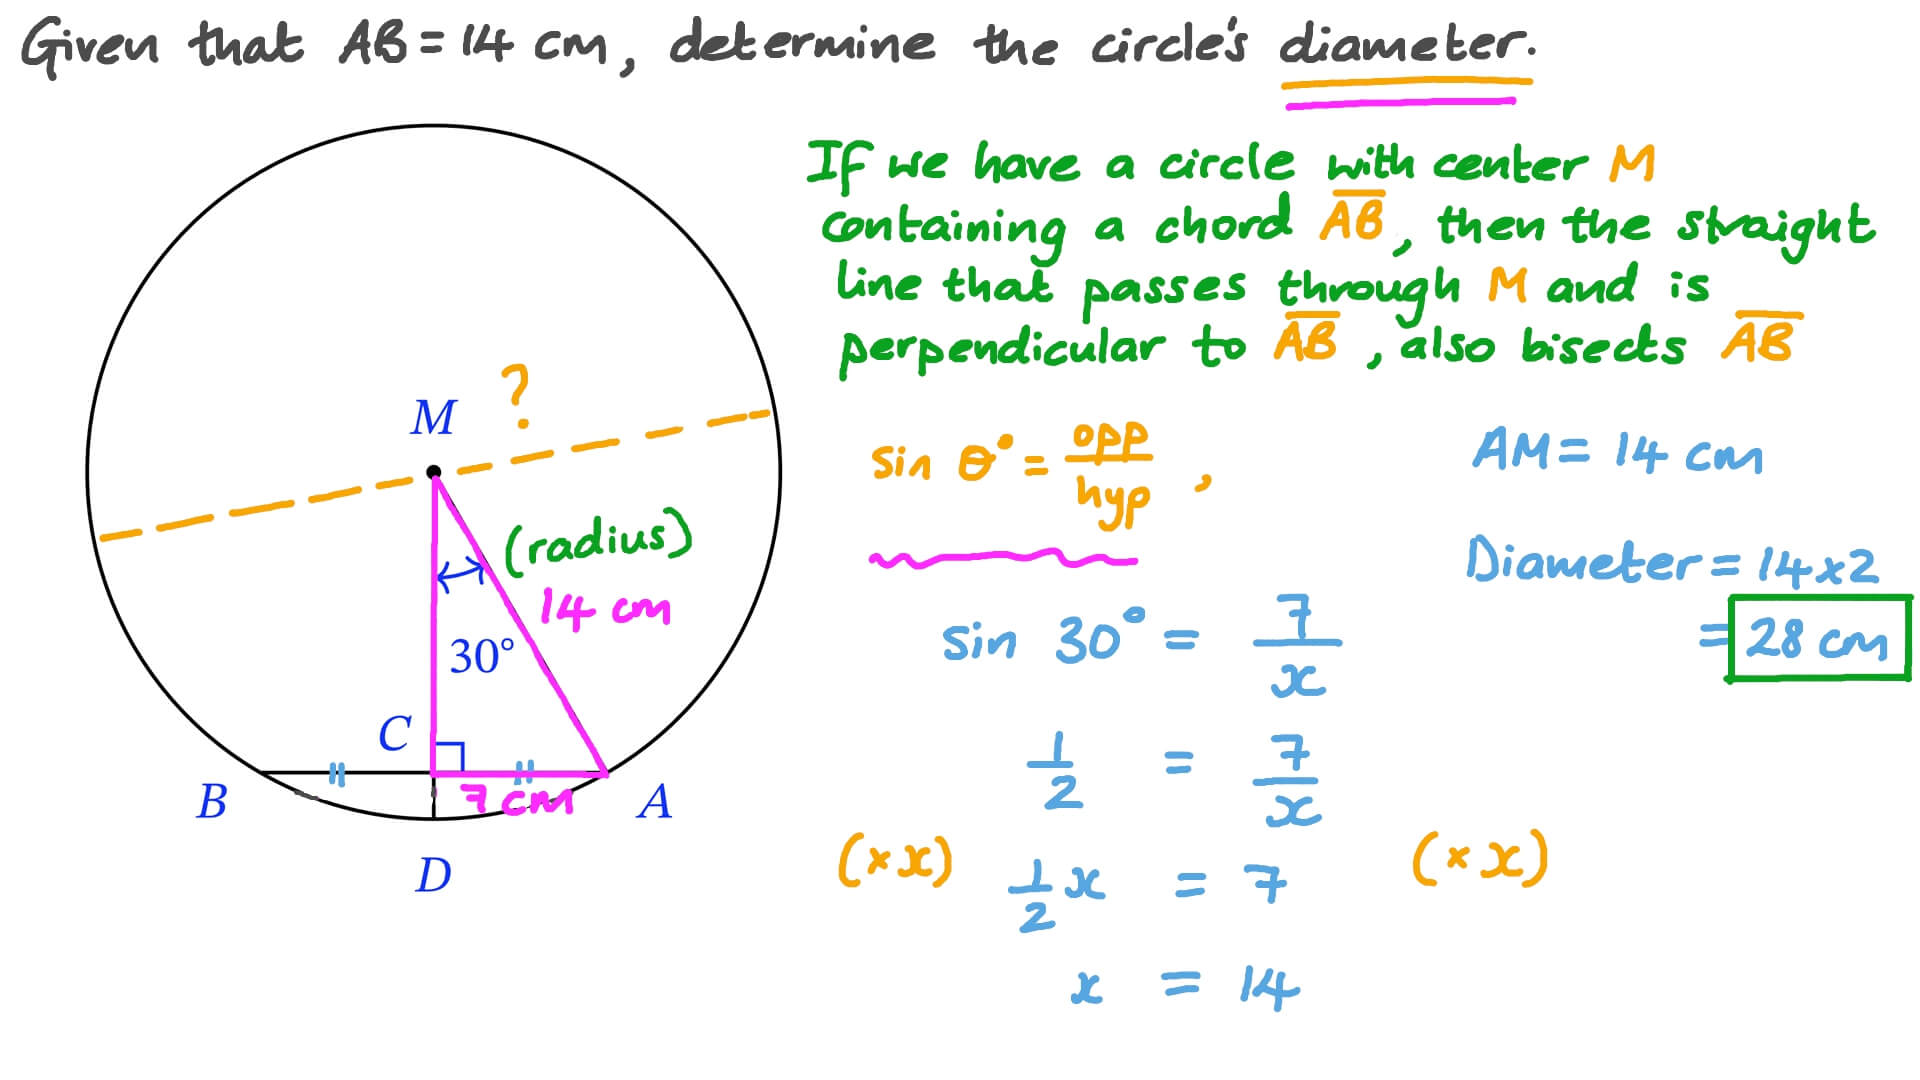 Given that AB = 14 cm, determine the circle's diameter.
If we have a circle with center M
containing a chord A̅B̅, then the straight
line that passes through M and is
perpendicular to A̅B̅, also bisects A̅B̅
?
M
(radius)
14 cm
30°
C
B
7 cm
A
D
sin θ° = opp/hyp ,
sin 30° = 7/x
1/2 = 7/x
(×x) 1/2 x = 7 (×x)
x = 14
AM = 14 cm
Diameter = 14×2
= 28 cm